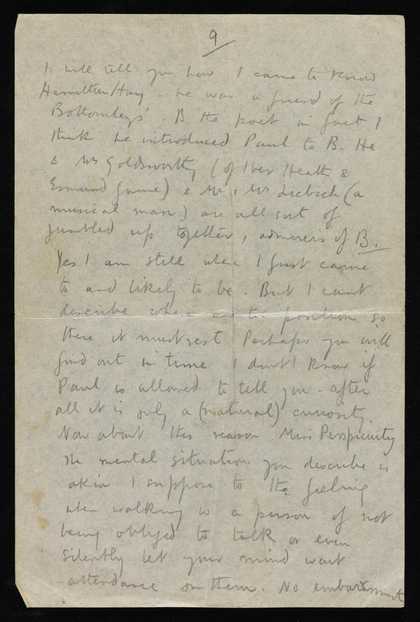 9
I will tell you how I came to know
Hamilton Hay - he was a friend of the
Bottomleys'. B the poet in fact I
think he introduced Paul to B. He
& Mrs Goldsworthy (of Iver Heath &
Esmund game) & Mr & Mrs Liebich (a
musical man) are all sort of
jumbled up together, admirers of B.
Yes I am still where I first came
to and likely to be. But I can't
describe where position so
there it must rest Perhaps you will
find out in time I don't know if
Paul is allowed to tell you - after
all it is only a (natural) curiosity.
Now about this reason Miss Perspicuity
the mental situation you describe is
akin I suppose to the feeling
when walking w a person of not
being obliged to talk or even
silently let your mind wait
attendance on them. No embarrassment